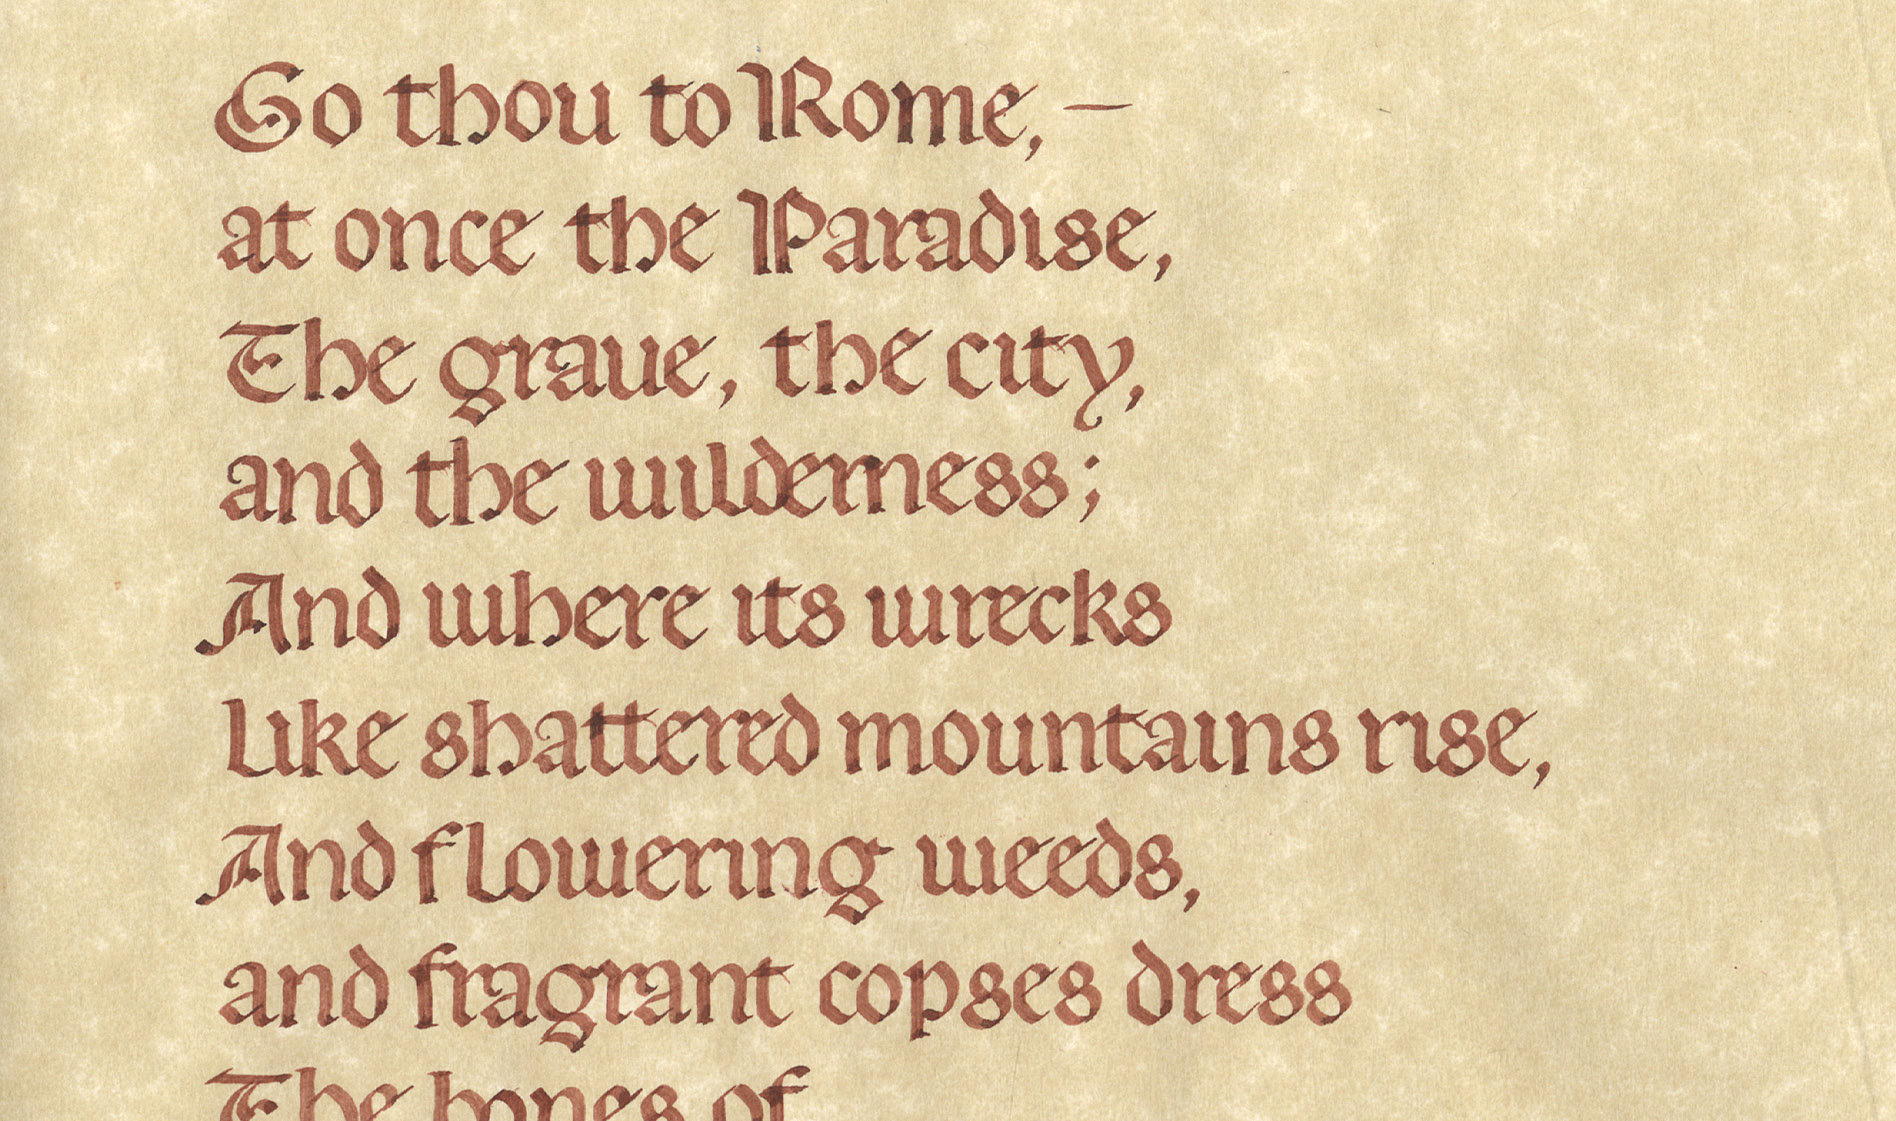 Go thou to Rome, —
at once the Paradise,
The graue, the city,
and the wilderness;
And where its wrecks
Like shattered mountains rise,
And flowering weeds,
and fragrant copses dress
The bones of